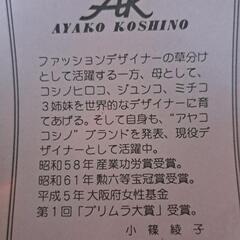 AK
AYAKO KOSHINO
ファッションデザイナーの草分け
として活躍する一方、母として、
コシノヒロコ、ジュンコ、ミチコ
3姉妹を世界的なデザイナーに育
てあげる。そして自身も、“アヤコ
コシノ”ブランドを発表、現役デ
ザイナーとして活躍中。
昭和58年 産業功労賞受賞。
昭和61年 勲六等宝冠賞受賞。
平成5年 大阪府女性基金
第1回「プリムラ大賞」受賞。
小篠綾子